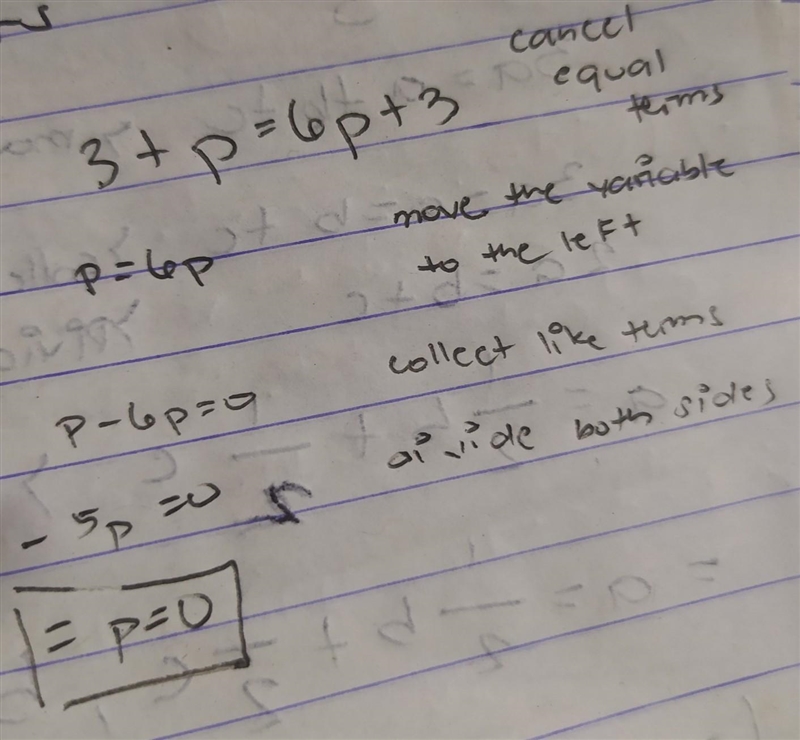 3 + p = 6p + 3
cancel
equal
terms
p = 6p
move the variable
to the left
p - 6p = 0
collect like terms
- 5p = 0
divide both sides
= p = 0